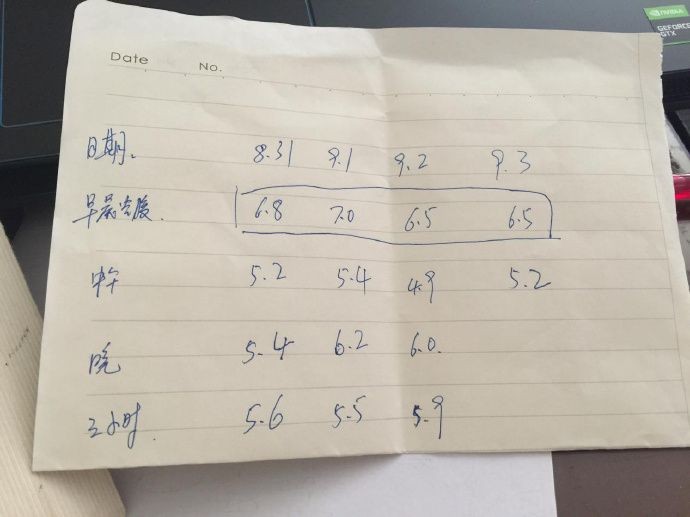 NVIDIA
GEFORCE
GTX
Date No.
日期. 8.31 9.1 9.2 9.3
早晨空腹. 6.8 7.0 6.5 6.5
中午 5.2 5.4 4.9 5.2
晚 5.4 6.2 6.0.
2小时. 5.6 5.5 5.9